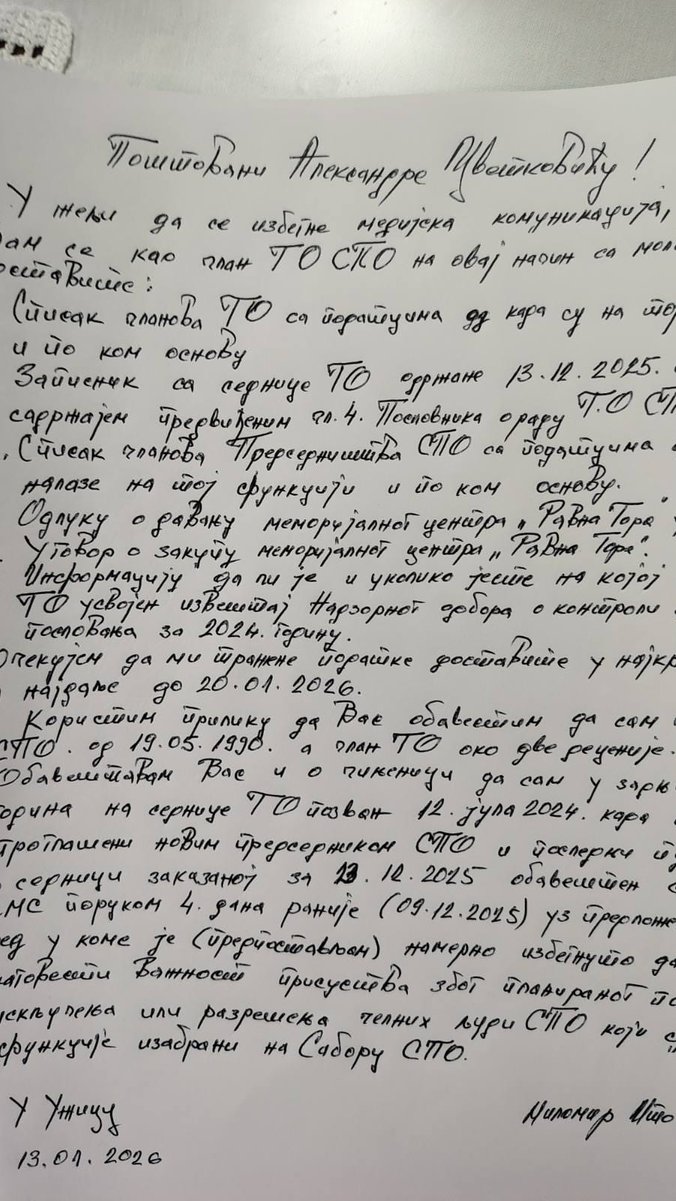 Поштовани Александре Цветковићу!
У жељи да се избегне медијска комуникација,
вам се као члан ТО СПО на овај начин са мол
оставите:
Списак чланова ТО са подацима од када су на то
и по ком основу
Записник са седнице ТО одржане 13.12.2025.
садржајем предвиђеним чл. 4. Пословника о раду Т.О СП
Списак чланова Председништва СПО са подацима
налазе на тој функцији и по ком основу.
Одлуку о давању меморијалног центра „Равна Гора"
Уговор о закупу меморијалног центра „Равна Гора".
Информацију да ли је и уколико јесте на којој
ТО усвојен извештај Надзорног одбора о контроли
пословања за 2024. годину.
Очекујем да ми тражене податке доставите у најкр
најдаље до 20.01.2026.
Користим прилику да Вас обавестим да сам
СПО. од 19.05.1990. а члан ТО око две деценије.
Обавештавам Вас и о чињеници да сам у задњ
година на седнице ТО позван 12. јула 2024. када
проглашени новим председником СПО и последњи п
седници заказаној за 13.12.2025 обавештен
МС поруком 4. дана раније (09.12.2025) уз предложе
ред у коме је (предпостављам) намерно избегнуто да
важност присуства због планираног
искључења или разрешења челних људи СПО који
функције изабрани на Сабору СПО.
У Ужицу
13.01.2026
Миломир